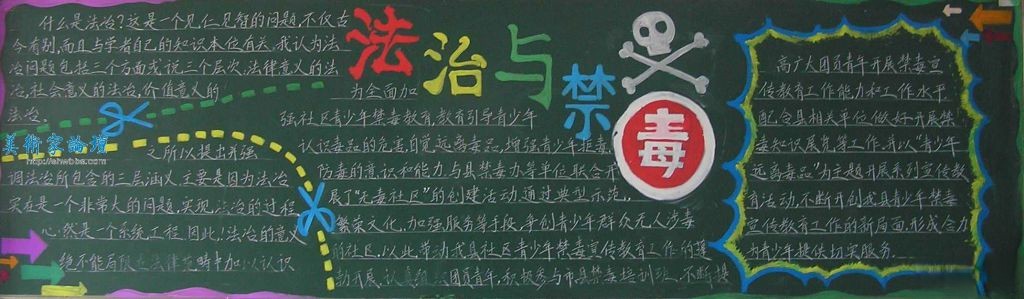 法治与禁毒
什么是法治?这是一个见仁见智的问题,不仅古
今有别,而且与学者自己的知识本位有关。我认为法
治问题包括三个方面或说三个层次:法律意义的法
治,社会意义的法治,价值意义的
法治。
之所以提出并强
调法治所包含的三层涵义,主要是因为法治
实在是一个非常大的问题,实现法治的过程
必然是一个系统工程,因此,法治的意义
绝不能局限在法律范畴中加以认识
美術室論壇
为全面加
强社区青少年禁毒教育,教育引导青少年
认识毒品的危害,自觉远离毒品,增强青少年拒毒
防毒的意识和能力,与县禁毒办等单位联合开
展了“无毒社区”的创建活动,通过典型示范,
繁荣文化,加强服务等手段,争创青少年群众无人涉毒
的社区,以此带动我县社区青少年禁毒宣传教育工作的蓬
勃开展,认真组织团员青年,积极参与市县禁毒培训班,不断提
高广大团员青年开展禁毒宣
传教育工作能力和工作水平
配合县相关单位做好开展禁
毒知识展览等工作,并以“青少年
远离毒品”为主题开展系列宣传教
育活动,不断开创我县青少年禁毒
宣传教育工作的新局面,形成合力
为青少年提供切实服务……